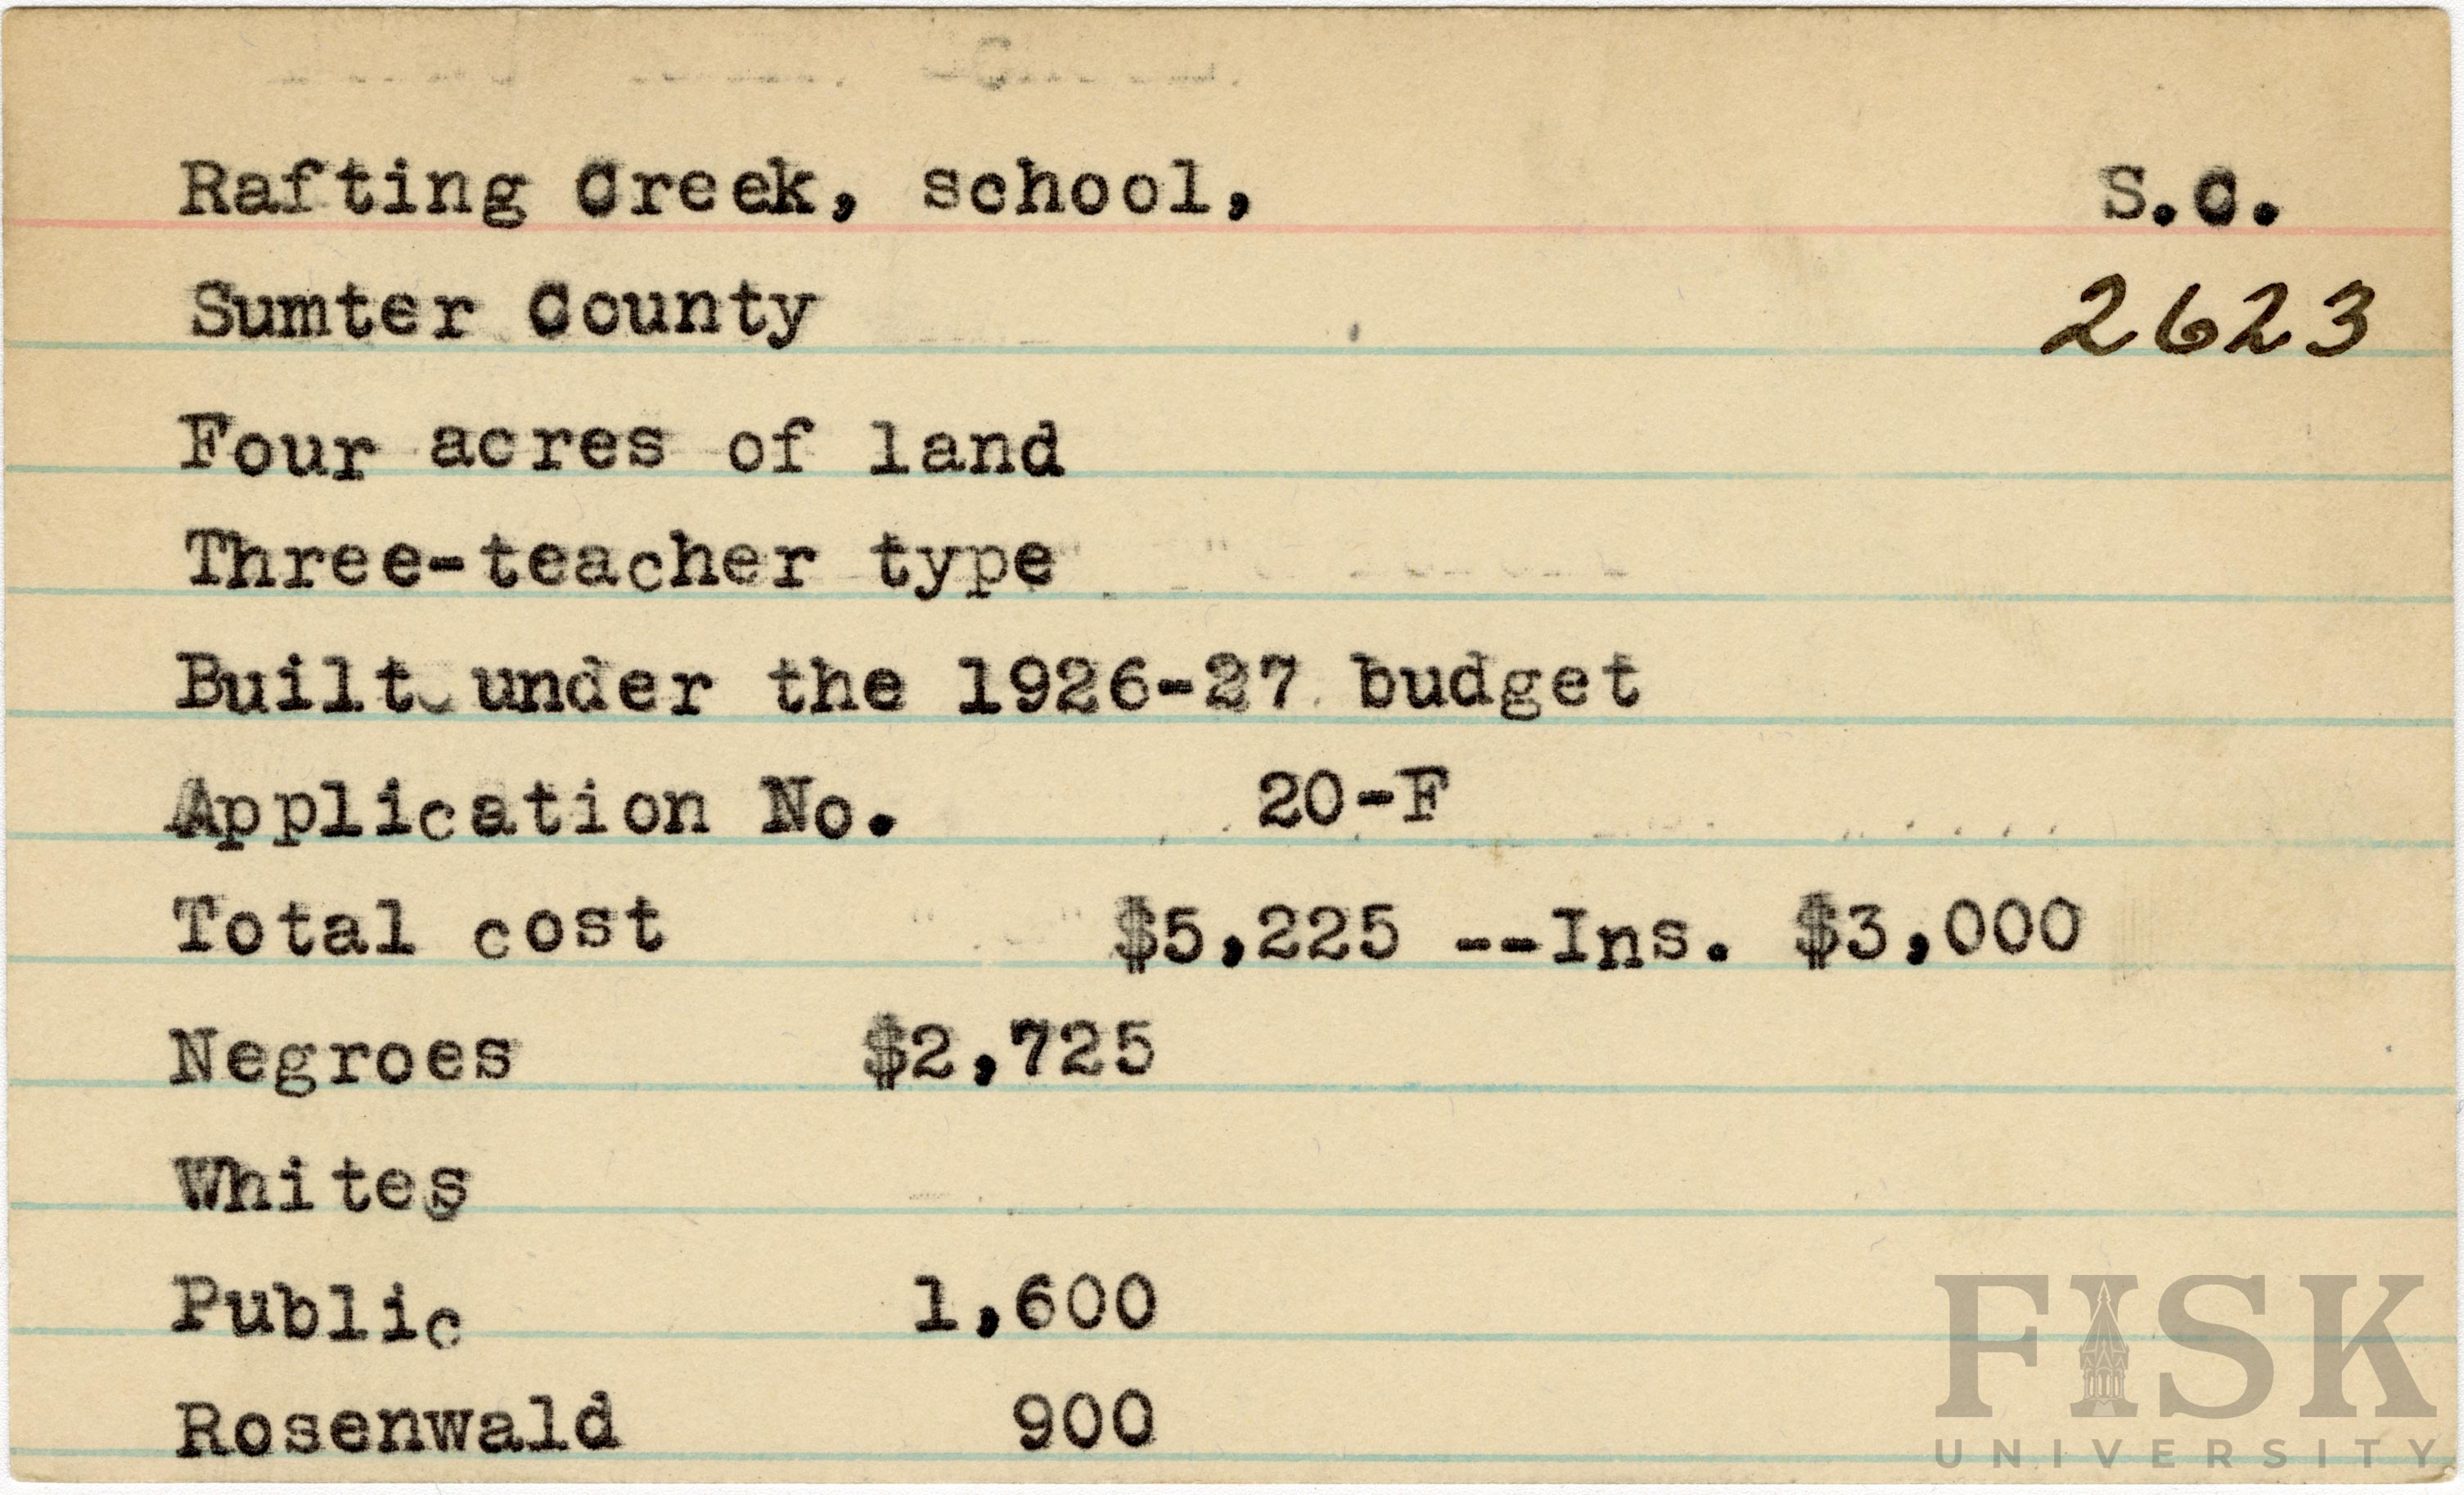 Rafting Creek, school, S.C.
Sumter County 2623
Four acres of land
Three-teacher type
Built under the 1926-27 budget
Application No. 20-F
Total cost $5,225 --Ins. $3,000
Negroes $2,725
Whites
Public 1,600
Rosenwald 900
FISK
UNIVERSITY